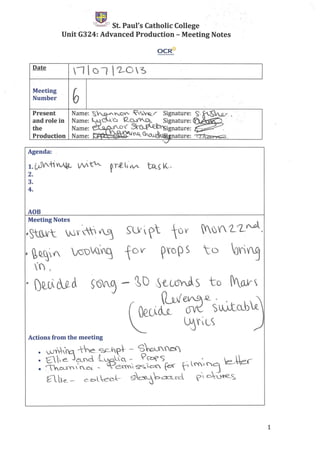 St. Paul's Catholic College
Unit G324: Advanced Production – Meeting Notes
OCR
Date
17|07|2013
Meeting
Number
6
Present
and role in
the
Production
Name: Shannon Fisher Signature: S.Fisher.
Name: Lydia Rama Signature:
Name: Eleanor Signature:
Name: Signature:
Agenda:
1. Continue with prelim task.
2.
3.
4.
AOB
Meeting Notes
• Start writing script for Mon 22nd.
• Begin looking for props to bring
in.
• Decided song – 30 seconds to Mars
Revenge.
(Decide on suitable)
lyrics
Actions from the meeting
• writing the script - Shannon
• Ellie and Lydia - Props
• Thamina - Permission for filming letter
Ellie - collect storyboard pictures
1